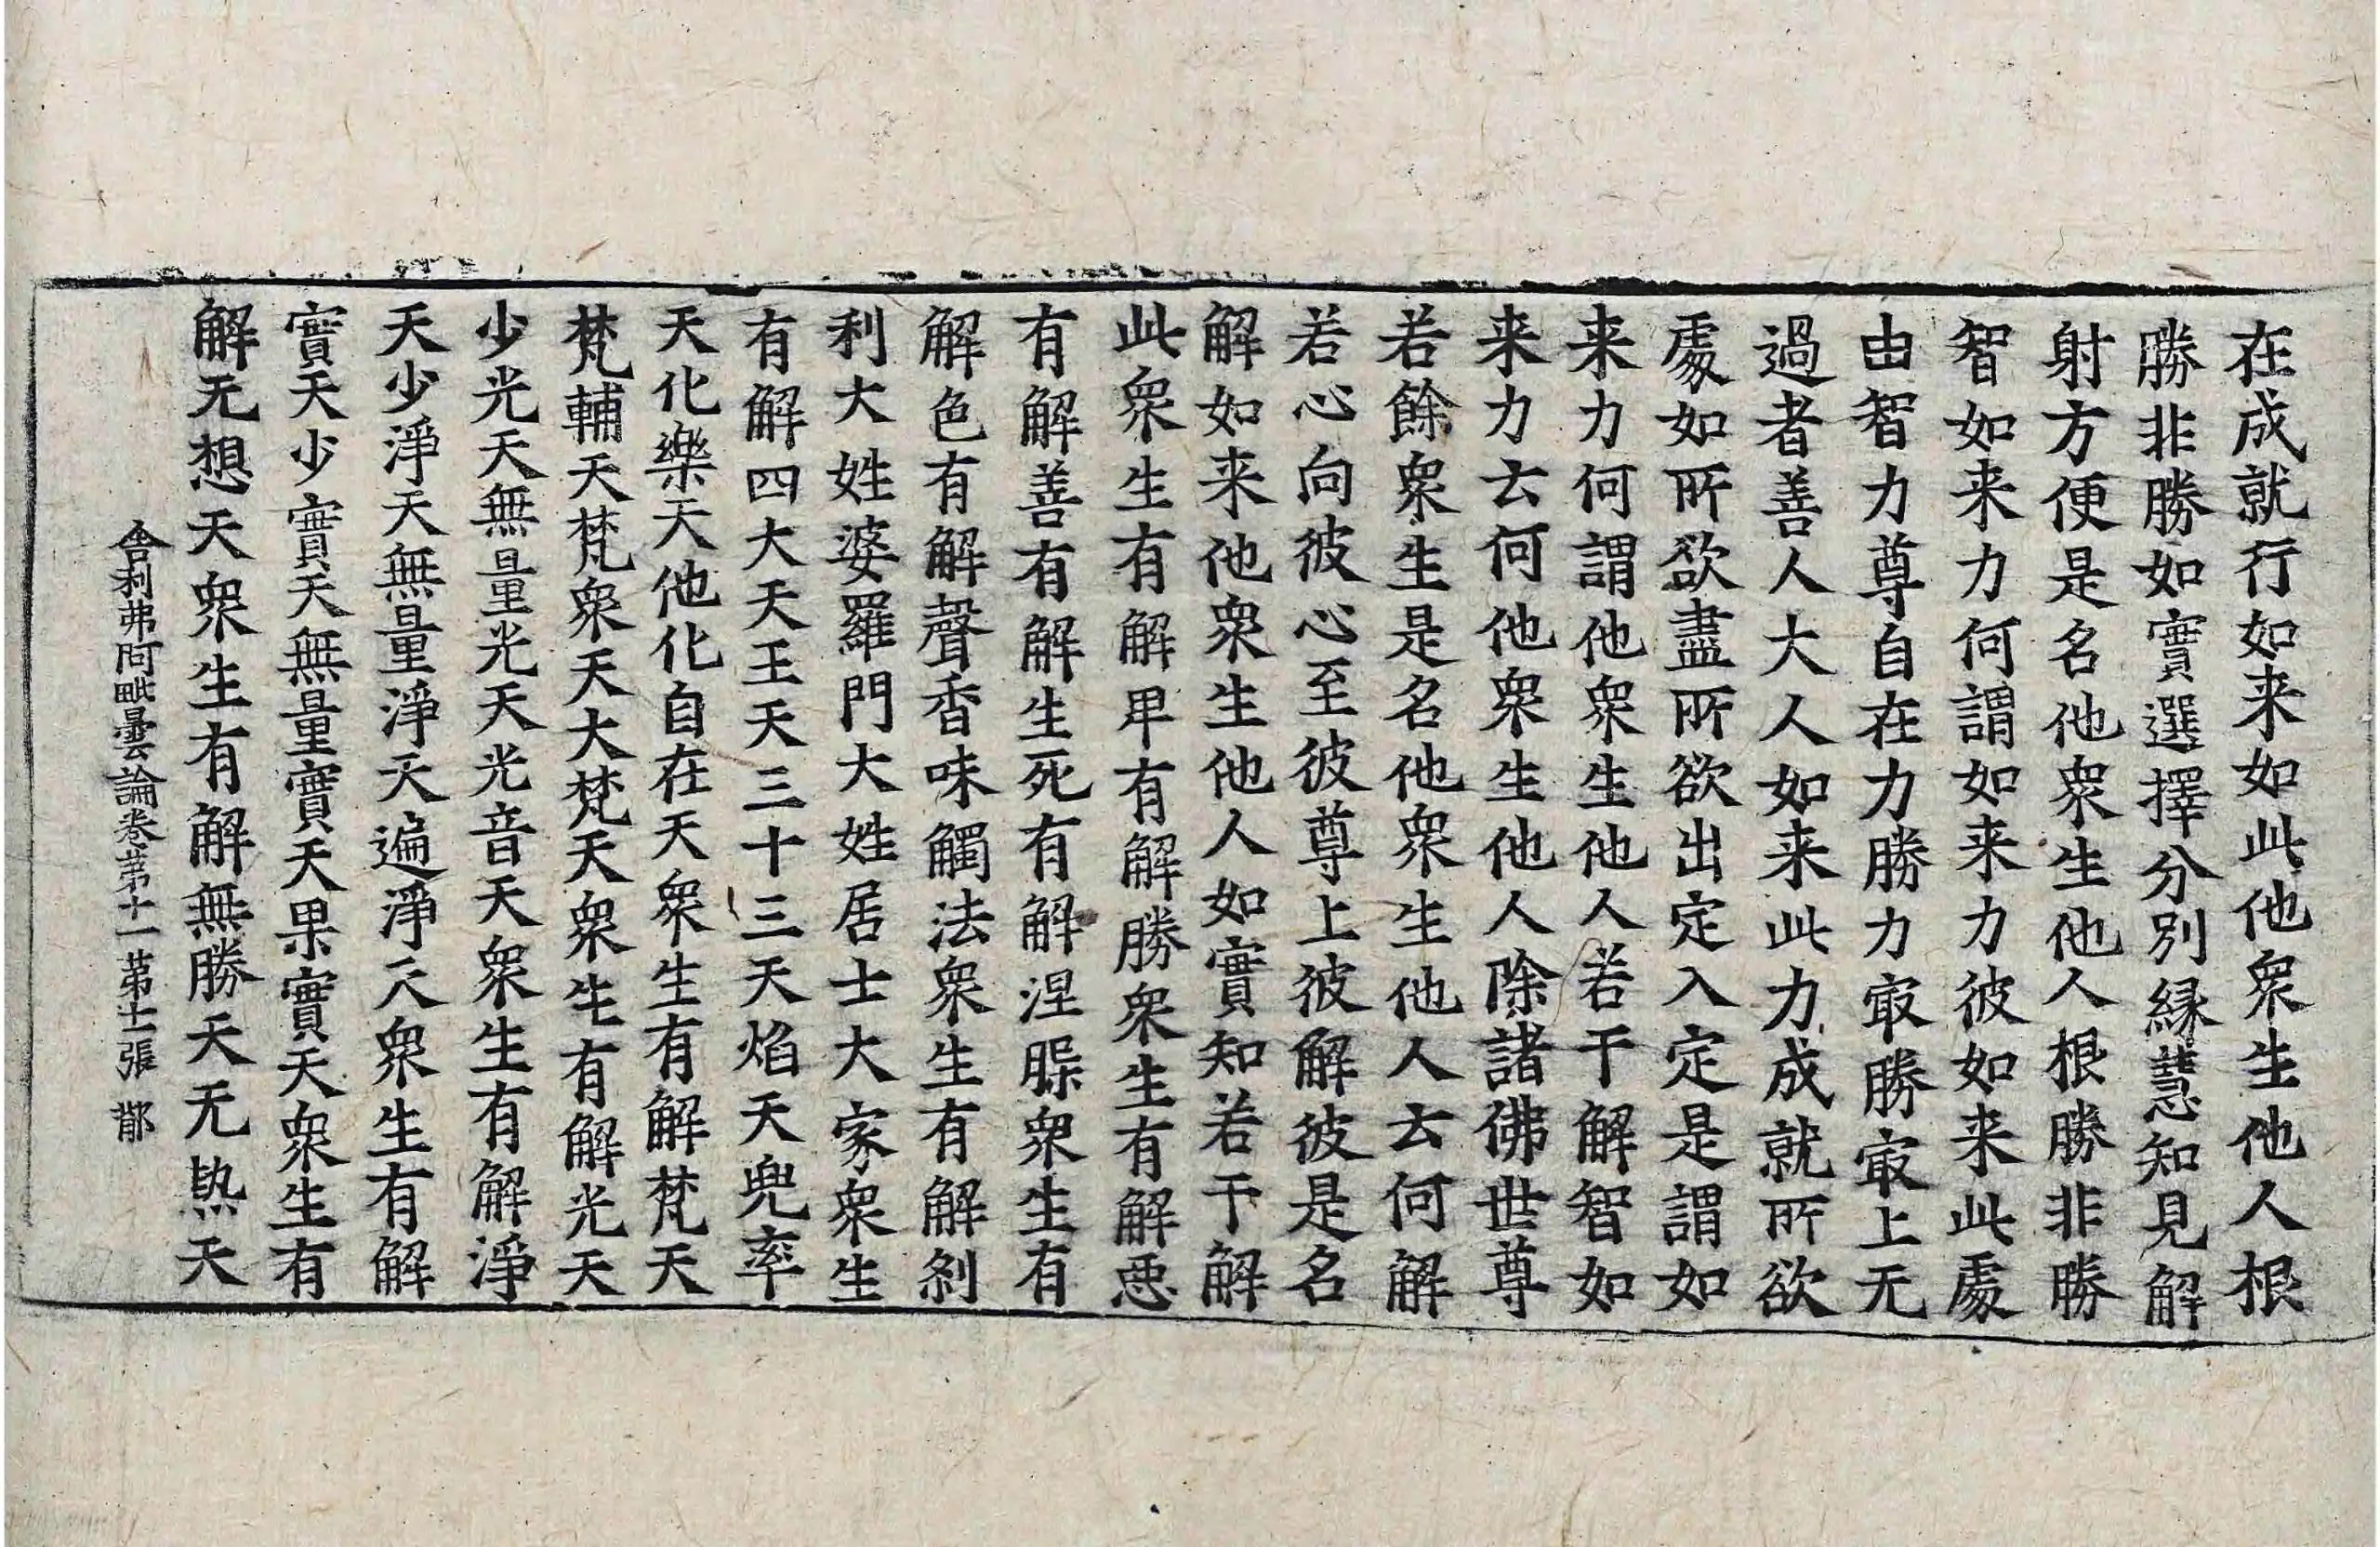 在成就行如来如此他衆生他人根
勝非勝如實選擇分別緣慧知見解
射方便是名他衆生他人根勝非勝
智如来力何謂如来力彼如来此處
由智力尊自在力勝力㝡勝㝡上无
過者善人大人如来此力成就所欲
處如所欲盡所欲出定入定是謂如
来力何謂他衆生他人若干解智如
来力云何他衆生他人除諸佛世尊
若餘衆生是名他衆生他人云何解
若心向彼心至彼尊上彼解彼是名
解如来他衆生他人如實知若干解
此衆生有解卑有解勝衆生有解惡
有解善有解生死有解涅槃衆生有
解色有解聲香味觸法衆生有解剎
利大姓婆羅門大姓居士大家衆生
有解四大天王天三十三天焰天兜率
天化樂天他化自在天衆生有解梵天
梵輔天梵衆天大梵天衆生有解光天
少光天無量光天光音天衆生有解淨
天少淨天無量淨天遍淨天衆生有解
實天少實天無量實天果實天衆生有
解无想天衆生有解無勝天无熱天
舍利弗阿毗曇論卷苐十一苐士張